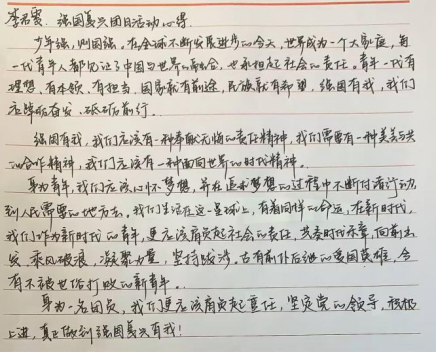 李君霞 强国复兴团日活动心得.
少年强,则国强。在全球不断发展进步的今天,世界成为一个大家庭,每
一代青年人都见证了中国与世界的融合,也承担起社会的责任。青年一代有
理想、有本领、有担当,国家就有前途,民族就有希望,强国有我,我们
应踔厉奋发,砥砺前行。
强国有我,我们应该有一种奉献无悔的责任精神,我们需要有一种美美与共
的合作精神,我们应该有一种面向世界的时代精神。
身为青年,我们应该心怀梦想,并在追求梦想的过程中不断付诸行动,
到人民需要的地方去。我们生活在这一星球上,有着同样的命运,在新时代,
我们作为新时代的青年,更应该肩负起社会的责任,共奏时代乐章,向前出
发,乘风破浪,凝聚力量,坚持跋涉。古有前仆后继的爱国英雄,今
有不被世俗打败的新青年。
身为一名团员,我们更应该肩负起责任,坚定党的领导,积极
上进,真正做到强国复兴有我!